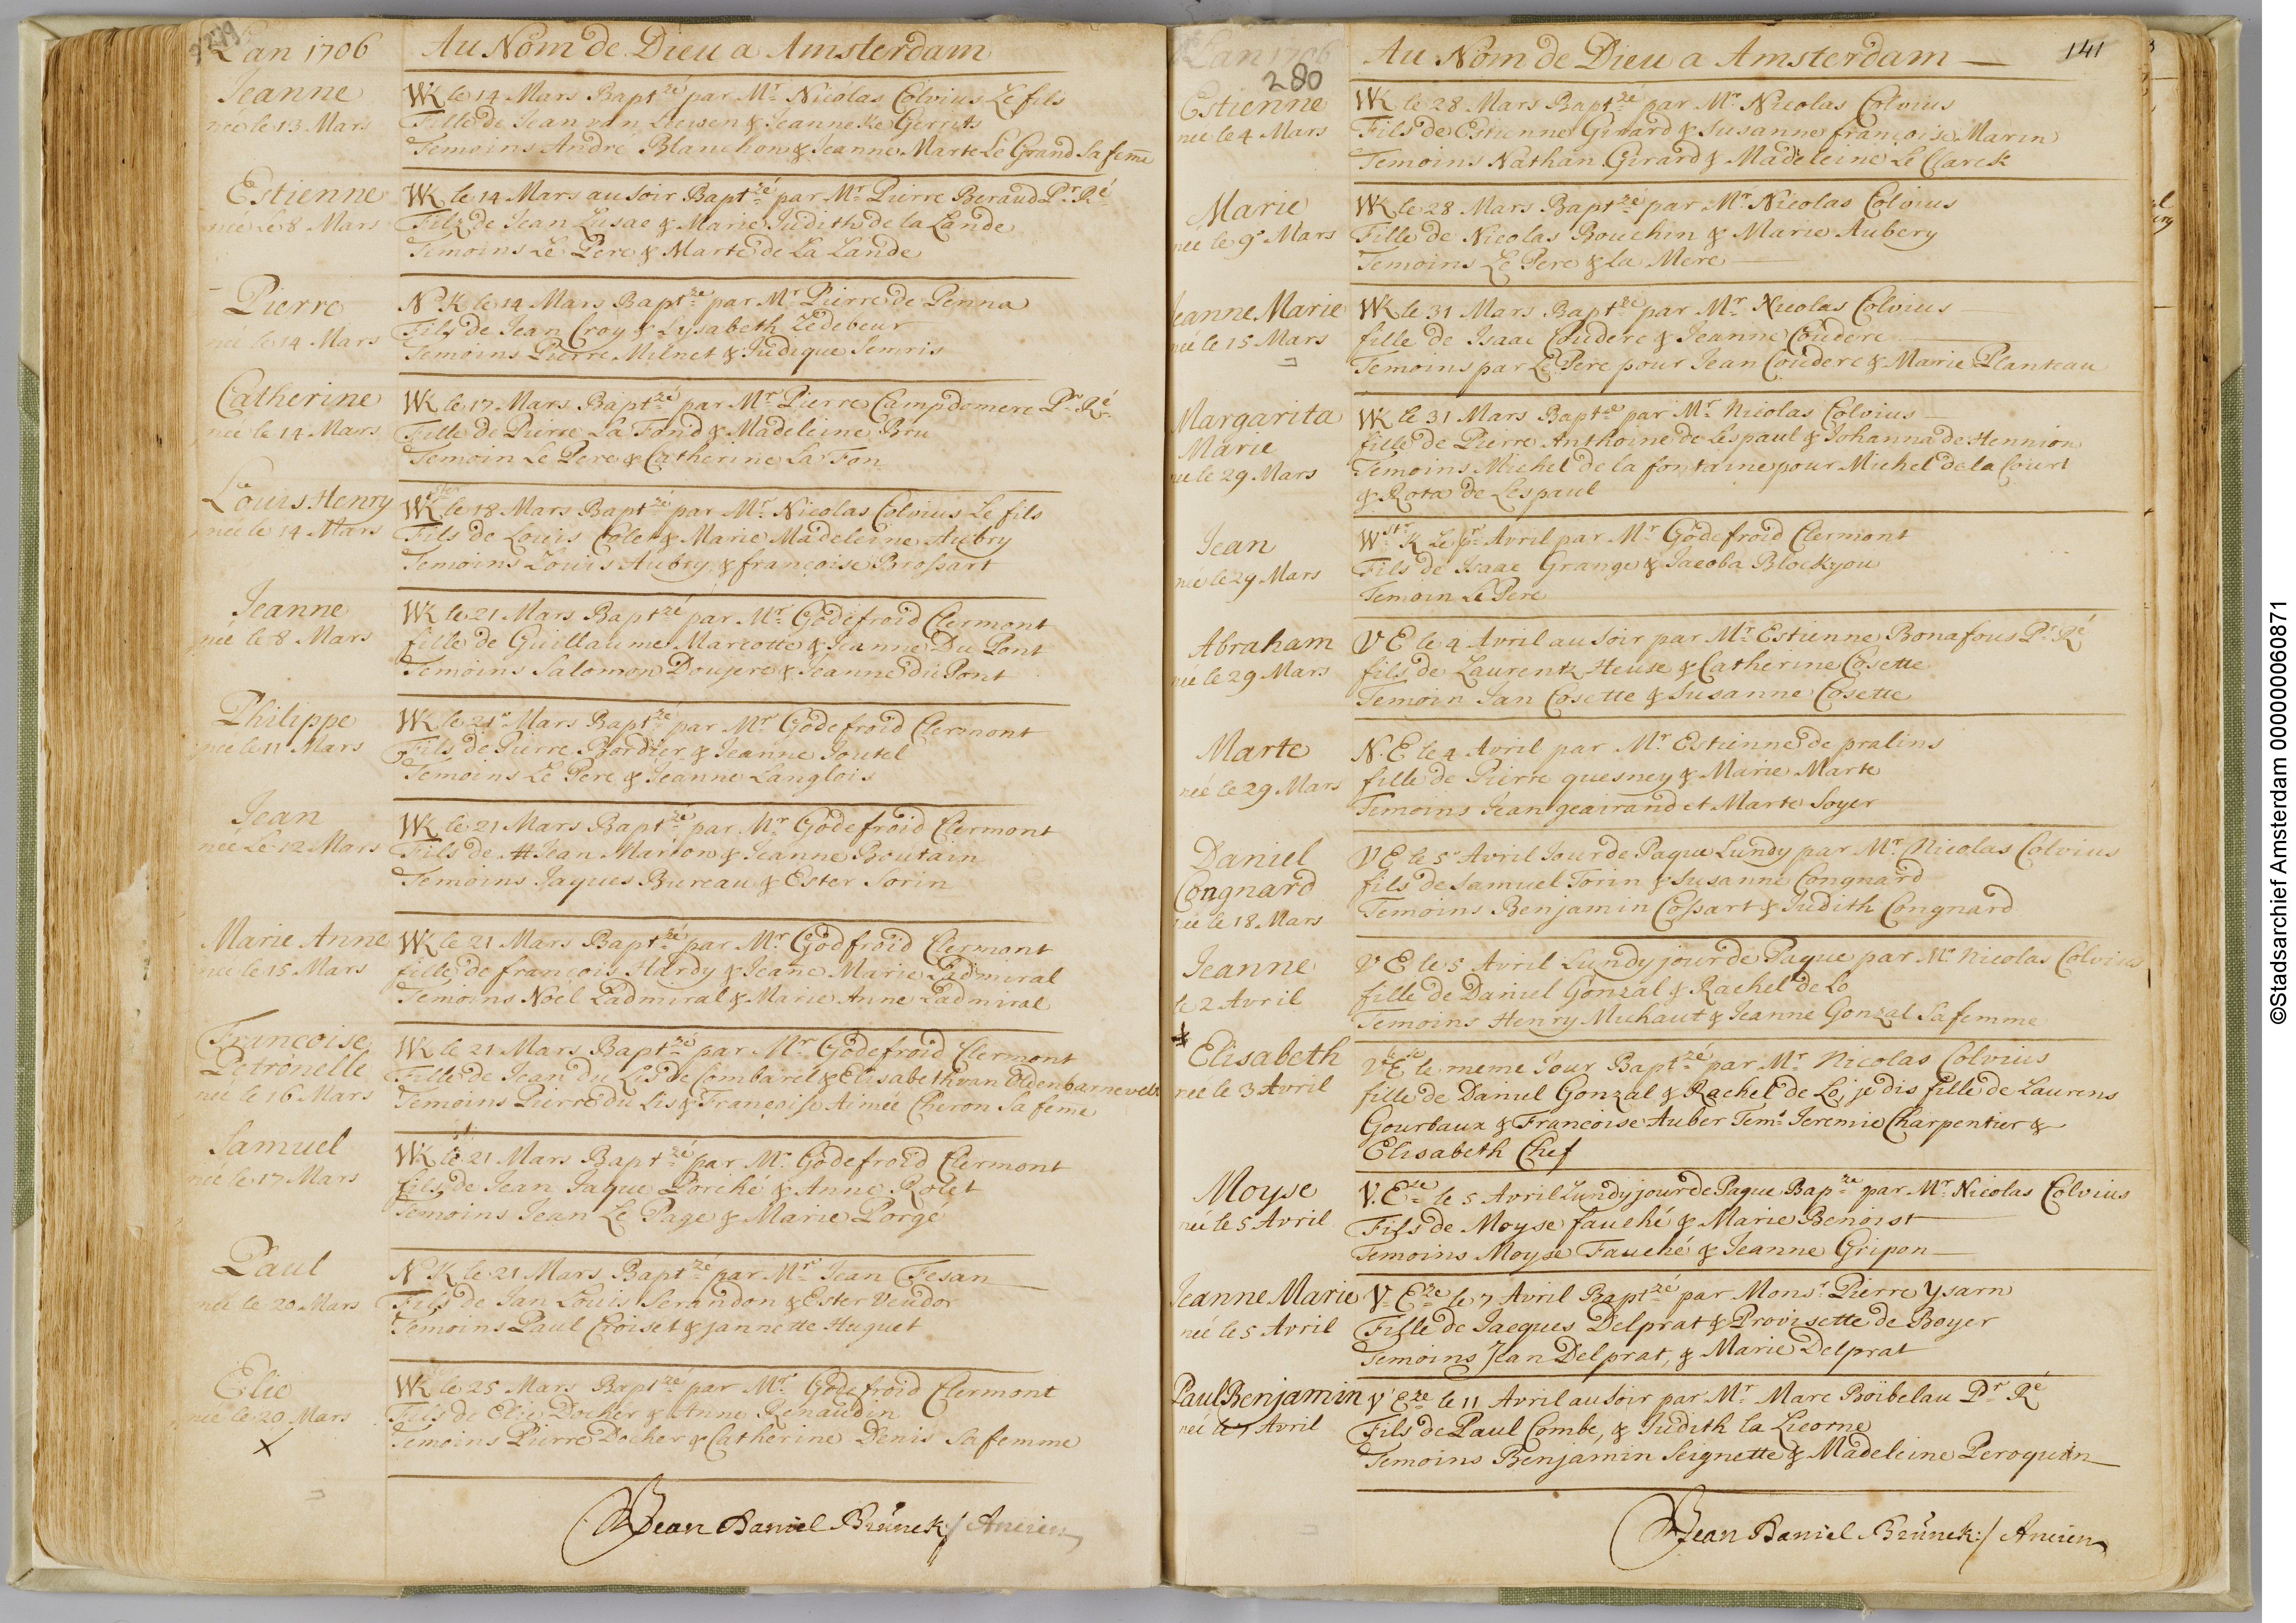 L'an 1706 Au Nom de Dieu a Amsterdam
Jeanne
née le 13 Mars
WK le 14 Mars Bapt.zé par Mr. Nicolas Colvius Le fils
Fille de Jean van Liewen & Jeanneke Gerrits
Temoins André Blanchon & Jeanne Marte Le Grand Sa feme
Estienne
née Le 8 Mars
WK le 14 Mars au Soir Bapt.zé par Mr. Pierre Beraud Pr. Ré
Filz de Jean Lusac & Marie Judith de la Lande
Temoins Le Pere & Marte de La Lande
Pierre
née le 14 Mars
N K le 14 Mars Bapt.zé par Mr. Pierre de Penna
Fils de Jean Croy & Lysabeth Zedebeur
Temoins Pierre Milnet & Judique Semris
Catherine
née le 14 Mars
WK le 17 Mars Bapt.zé par Mr. Pierre Campdomere Pr. Ré
Fille de Pierre La Fond & Madeleine Bru
Temoin Le Pere & Catherine La Fon
Louis Henry
née le 14 Mars
WK le 18 Mars Bapt.zé par Mr. Nicolas Colvius Le fils
Fils de Louis Cole & Marie Madeleine Aubry
Temoins Louis Aubry & françoise Brossart
Jeanne
née le 8 Mars
WK le 21 Mars Bapt.zé par Mr. Godefroid Clermont
fille de Guillaume Marcotte & Jeanne Du Pont
Temoins Salomon Doujere & Jeanne du Pont
Philippe
née le 11 Mars
WK le 21e Mars Bapt.zé par Mr. Godefroid Clermont
Fils de Pierre Bordier & Jeanne Joutel
Temoins Le Pere & Jeanne Langlois
Jean
née Le 12 Mars
WK le 21 Mars Bapt.zé par Mr. Godefroid Clermont
Fils de Jean Marion & Jeanne Boutain
Temoins Jaques Bureau & Ester Sorin
Marie Anne
née le 15 Mars
WK le 21 Mars Bapt.zé par Mr. Godfroid Clermont
fille de françois Hardy & Jeane Marie L'admiral
Temoins Noel L'admiral & Marie Anne L'admiral
Françoise
Petronelle
née le 16 Mars
WK le 21 Mars Bapt.zé par Mr. Godefroid Clermont
Fille de Jean du Lis de Combarel & Elisabeth van Oldenbarnevelt
Temoins Pierre du Lis & Françoise Aimée Cheron Sa feme
Samuel
née le 17 Mars
WK le 21 Mars Bapt.zé par Mr. Godefroid Clermont
fils de Jean Jaque Porché & Anne Rolet
Temoins Jean Le Page & Marie Porgé
Paul
née le 20 Mars
N K le 21 Mars Bapt.zé par Mr. Jean Fesan
Fils de Jan Louis Serandon & Ester Veudor
Temoins Paul Croiset & jannette Huguet
Elie
née le 20 Mars
X
WK le 25 Mars Bapt.zé par Mr. Godefroid Clermont
Fils de Elie Docher & Anne Renaudin
Temoins Pierre Docher & Catherine Denis Sa femme
Jean Daniel Brünek:/ Ancien
L'an 1706 Au Nom de Dieu a Amsterdam 141
280
Estienne
née le 4 Mars
WK le 28 Mars Bapt.zé par Mr. Nicolas Colvius
Fils de Estienne Girard & Susanne françoise Marin
Temoins Nathan Girard & Madeleine Le Clarck
Marie
née le 9e Mars
WK le 28 Mars Bapt.zé par Mr. Nicolas Colvius
Fille de Nicolas Bouchin & Marie Aubery
Temoins Le Pere & la Mere
Jeanne Marie
née le 15 Mars
WK le 31 Mars Bapt.zé par Mr. Nicolas Colvius
fille de Isaac Couderc & Jeanne Couderc
Temoins par Le Pere pour Jean Couderc & Marie Planteau
Margarita
Marie
née le 29 Mars
WK le 31 Mars Bapt.zé par Mr. Nicolas Colvius
fille de Pierre Anthoine de Lespaul & Johanna de Hennion
Temoins Michel de la fontaine pour Michel de la Court
& Rota de Lespaul
Jean
née le 29 Mars
Wstr. K Le pr. Avril par Mr. Godefroid Clermont
Fils de Isaac Grange & Jacoba Blockyou
Temoin Le Pere
Abraham
née le 29 Mars
V E le 4 Avril au Soir par Mr. Estienne Bonafous Pr. Ré
fils de Laurentz Heuse & Catherine Cosette
Temoin Jan Cosette & Susanne Cosette
Marte
née le 29 Mars
N. E le 4 Avril par Mr. Estienne de pralins
fille de Pierre quesney & Marie Marte
Temoins Jean geairand et Marte Soyer
Daniel
Congnard
née le 18 Mars
V E le 5e Avril Jour de Paque Lundy par Mr. Nicolas Colvius
fils de Samuel Torin & Susanne Congnard
Temoins Benjamin Cossart & Judith Congnard
Jeanne
le 2 Avril
V E le 5 Avril Lundy jour de Paque par Mr Nicolas Colvius
fille de Daniel Gonzal & Rachel de Lo
Temoins Henry Michaut & Jeanne Gonzal Sa femme
Elisabeth
née le 3 Avril
V E le meme Jour Bapt.zé par Mr. Nicolas Colvius
fille de Daniel Gonzal & Rachel de Lo, je dis fille de Laurens
Gourbaux & Francoise Auber Tem.s Jeremie Charpentier &
Elisabeth Chef
Moyse
née le 5 Avril
V. Eze le 5 Avril Lundy jour de Paque Bap.ze par Mr. Nicolas Colvius
Fils de Moyse fauché & Marie Benoist
Temoins Moyse Fauché & Jeanne Gripon
Jeanne Marie
née le 5 Avril
V. Eze le 7 Avril Bapt.zé par Monsr. Pierre Ysarn
Fille de Jacques Delprat & Provisette de Boyer
Temoins Jean Delprat, & Marie Delprat
Paul Benjamin
née le 7 Avril
V Eze le 11 Avril au Soir par Mr. Marc Boibelau Pr. Ré
Fils de Paul Combe, & Judith la Licorne
Temoins Benjamin Seignette & Madeleine Peroquin
Jean Daniel Brünek:/ Ancien
©Stadsarchief Amsterdam 000000060871